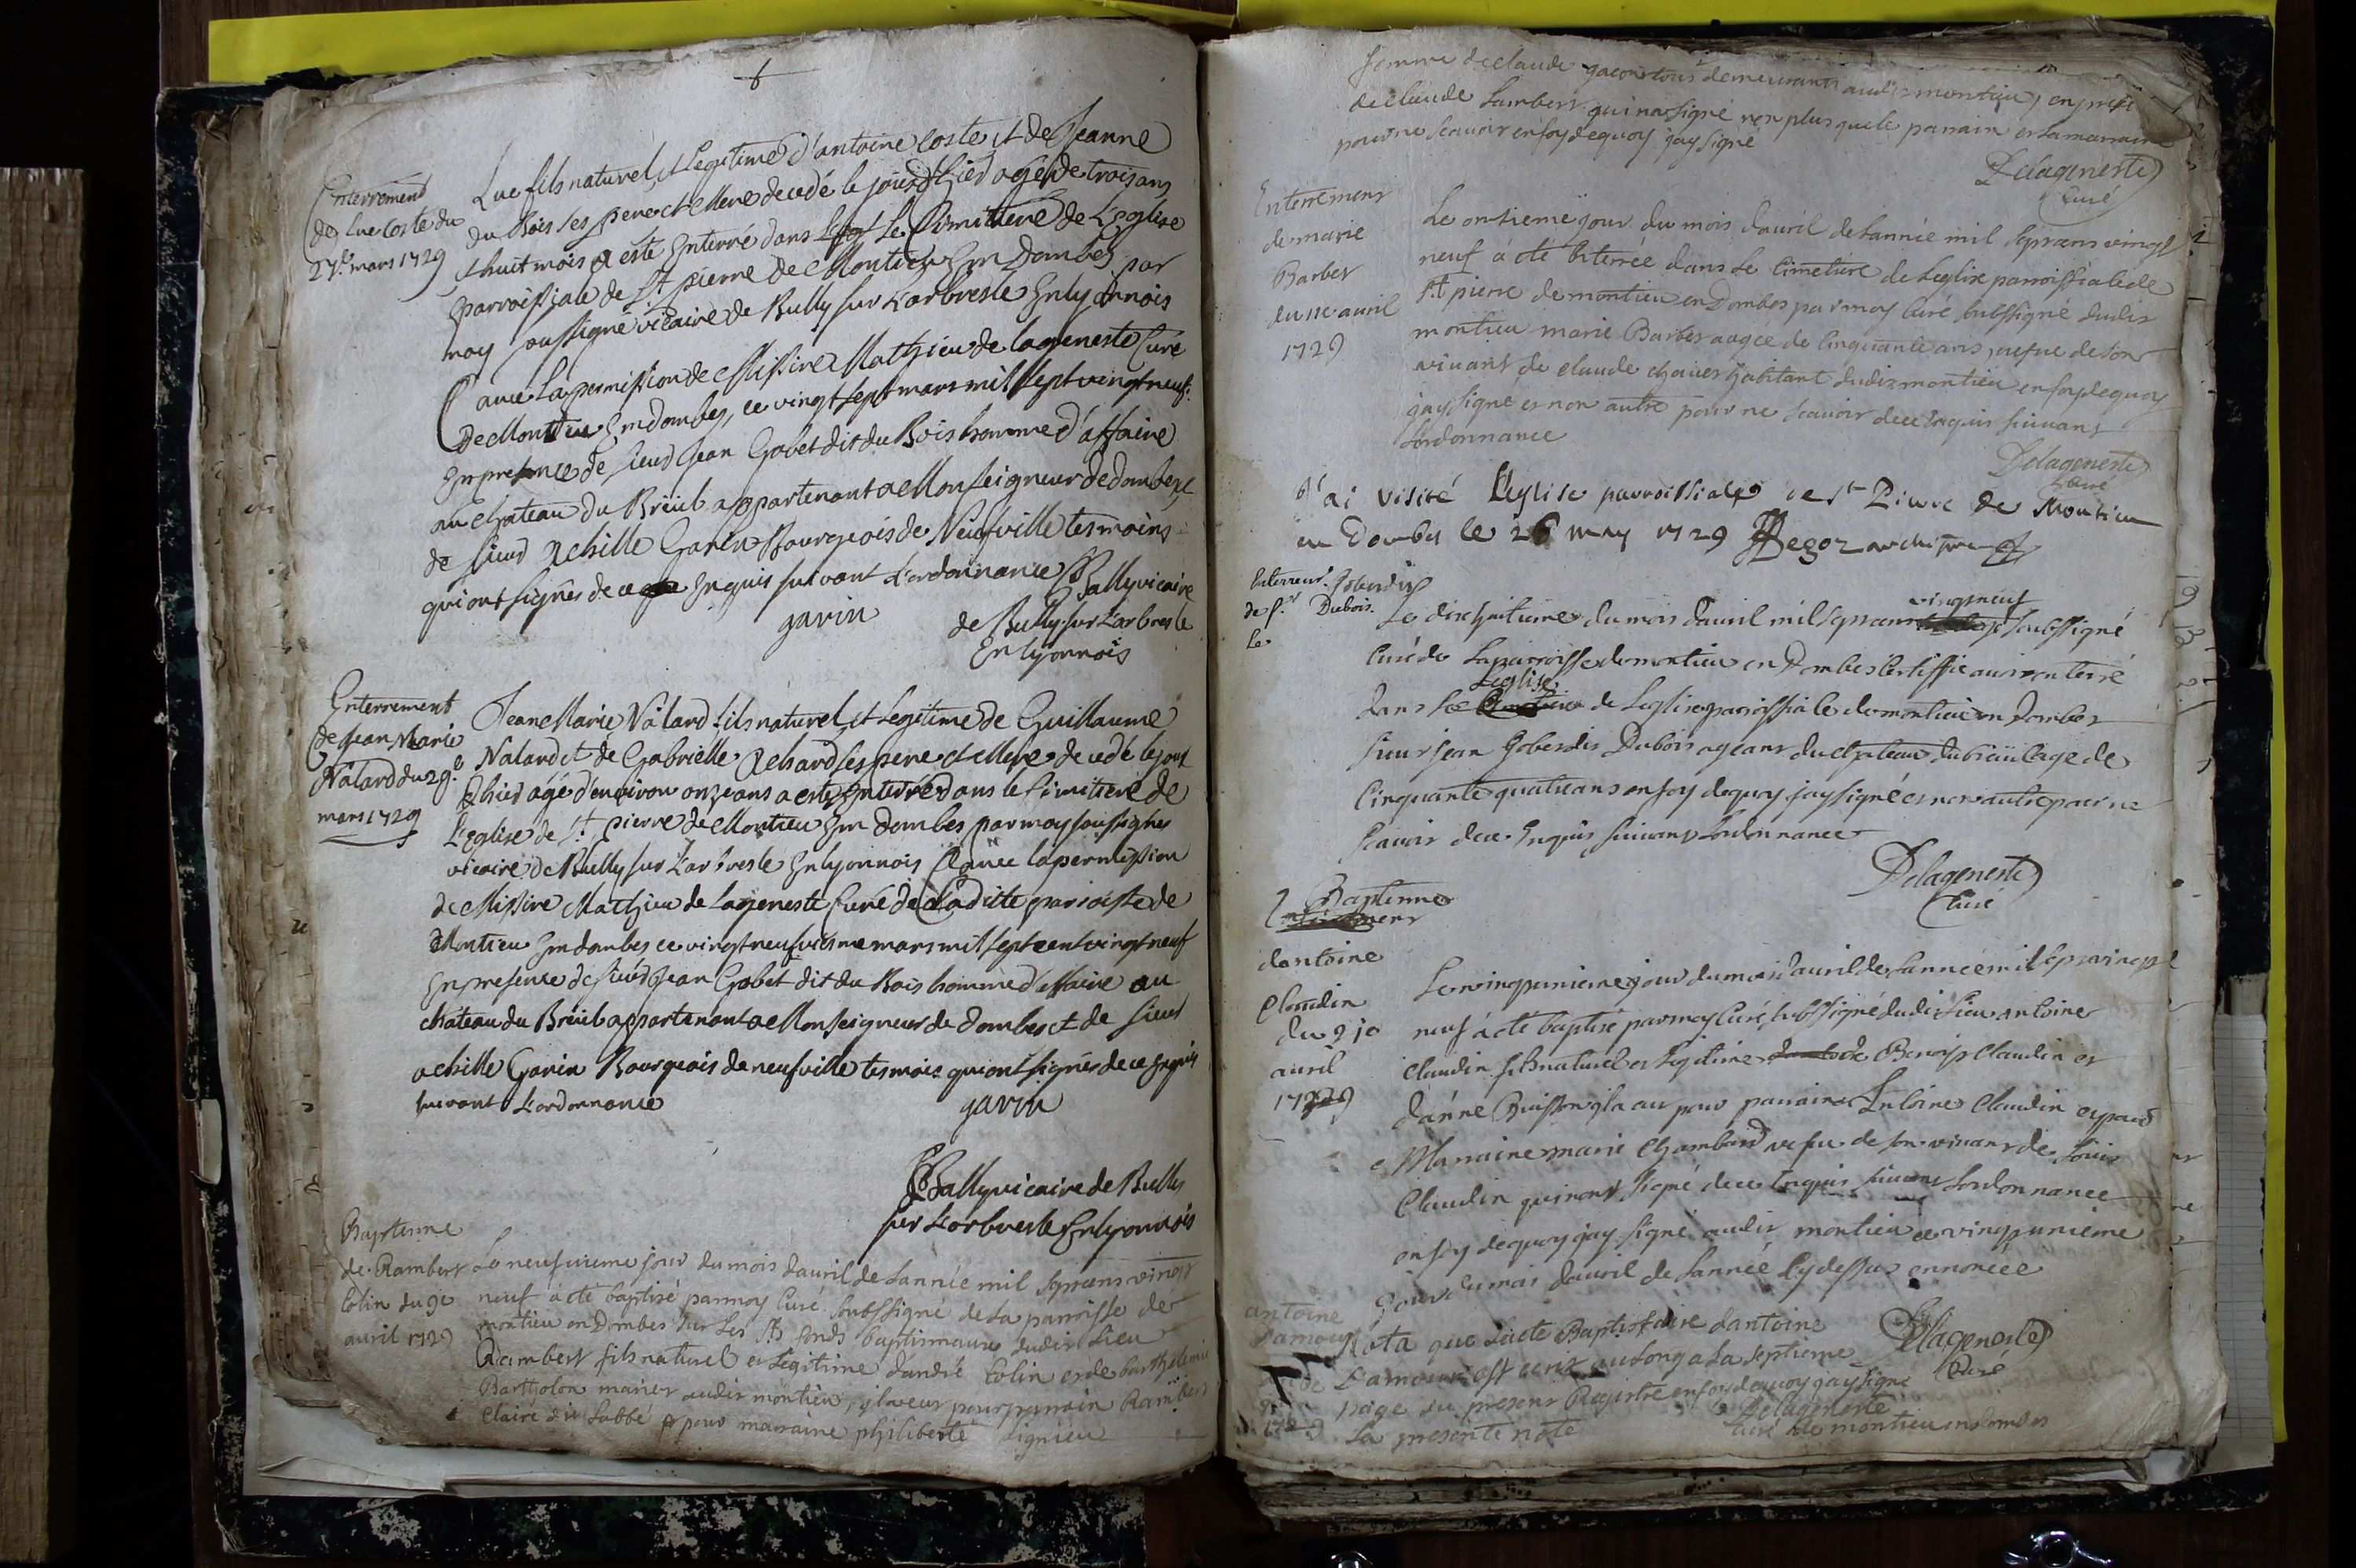 6
Enterrement
de Luc Coste du
27e mars 1729
Luc fils naturel et Legitime d'antoine Coste et de Jeanne
du Bois ses pere et Mere decedé le jour d'hier agé de trois ans
et huit mois a esté Enterré dans le Cimitiere de L'Eglise
parroissiale de St pierre de Montieu Em Dombes par
moy soussigné vicaire de Bully sur L'arbresle En lyonnois
avec La permission de Missire Mathieu de lageneste Curé
De Montieu Em dombes, ce vingt sept mars mil sept vingt neuf
En presence de sieur Jean Gobet dit du Bois homme d'affaire
au chateau du Breüil appartenant a Monseigneur de dombes et
de sieur Achille Garin Bourgeois de Neufville tesmoins
qui ont signés de ce Enquis suivant L'ordonnance Bally vicaire
garin de Bully sur L'arbresle
En lyonnois
Enterrement
de Jean Marie
Nâlard du 29e
mars 1729
Jean Marie Nâlard fils naturel et Legitime de Guillaume
Nalard et de Gabrielle Achard ses pere et Mere decedé le jour
d'hier agé d'environ onze ans a esté Enterré dans le Cimitiere de
L'Eglise de St pierre de Montieu Em dombes par moy soussignes
vicaire de Bully sur L'arbresle En lyonnois avec la permission
de Missire Mathieu de Lageneste Curé de Ladite parroisse de
Montieu Em dombes ce vingt neufviesme mars mil sept cent vingt neuf
En presence de sieur Jean Gobet dit du Bois homme d'affaire au
chateau du Breüil appartenant a Monseigneur de dombes et de sieur
achille Garin Bourgeois de neufville tesmois qui ont signés de ce Enquis
suivant L'ordonnance garin
Bally vicaire de Bully
sur L'arbresle En lyonnois
Baptenne
de Rambert
Colin du 9e
avril 1729
Le neufvieme jour du mois d'avril de Lannée mil septcens vingt
neuf à été baptisé par moy Curé soubssigné de La paroisse de
montieu en Dombes sur Les Sts fonds baptismaux dudit Lieu
Rambert fils naturel et Legitime d'andré Colin et de barthelemie
Bartholon mariés audit montieu, il a eut pour parrain Rambert
Claire dit Labbé et pour marraine philiberte Lignieu
femme de claude gacon tous demeurants audit montieu, en presé
de claude Lambert qui na signé non plus que le parrain et la marraine
pour ne scavoir en foy dequoy jay signé
Delageneste
Curé
Enterrement
de marie
Barbet
du 11e avril
1729
Le onsieme jour du mois d'avril de Lannée mil septcens vingt
neuf à été Enterrée dans Le Cimetiere de Leglise parroissiale de
St pierre de montieu en Dombes par moy Curé subssigné dudit
montieu marie Barbet aagée de Cinquante ans, vefue de son
vivant de claude chavet habitant dudit montieu en foy dequoy
jay signé et non autre pour ne scavoir de ce Enquis suivant
Lordonnance
Delageneste
Curé
J'ai visité L'Eglise parroissiale de St Pierre de Montieu
en Dombes le 26 may 1729 Begoz archipretre
Enterremt
de Sr Dubois.
Le
Le dixhuitieme du mois d'avril mil septcens vingtneuf je soubssigné
Curé de La paroisse de montieu en Dombes Certiffie avoir enterré
dans Leglise de Leglise paroissiale de montieu en Dombes
sieur jean Gobet dit Dubois ageant du chateau du breüil agé de
Cinquante quatre ans en foy dequoy jay signé et non autre pour ne
scavoir de ce Enquis suivant Lordonnance
Delageneste
Curé
Baptenne
dantoine
Claudin
du 21e
avril
1729
Le vingtunieme jour du mois d'avril de Lannée mil sept vingt
neuf à été baptisé par moy Curé subssigné dudit Lieu antoine
Claudin fils naturel et Legitime de Benoist Claudin et
d'anne Buisson, il a eu pour parrain Antoine Claudin et pour
Marraine marie Chambard vefue de son vivant de Louis
Claudin qui nont signé de ce Enquis suivant Lordonnance
en foy dequoy jay signé audit montieu ce vingtunieme
jour du mois d'avril de Lannée Cy dessus ennoncée
Delageneste
Curé
antoine
Lamour
1729
Nota que Lacte Baptistaire d'antoine
Lamour est ecrit au long a La septieme
page du present Registre en foy dequoy jay signé
La presente note
Delageneste
curé de montieu en dombes